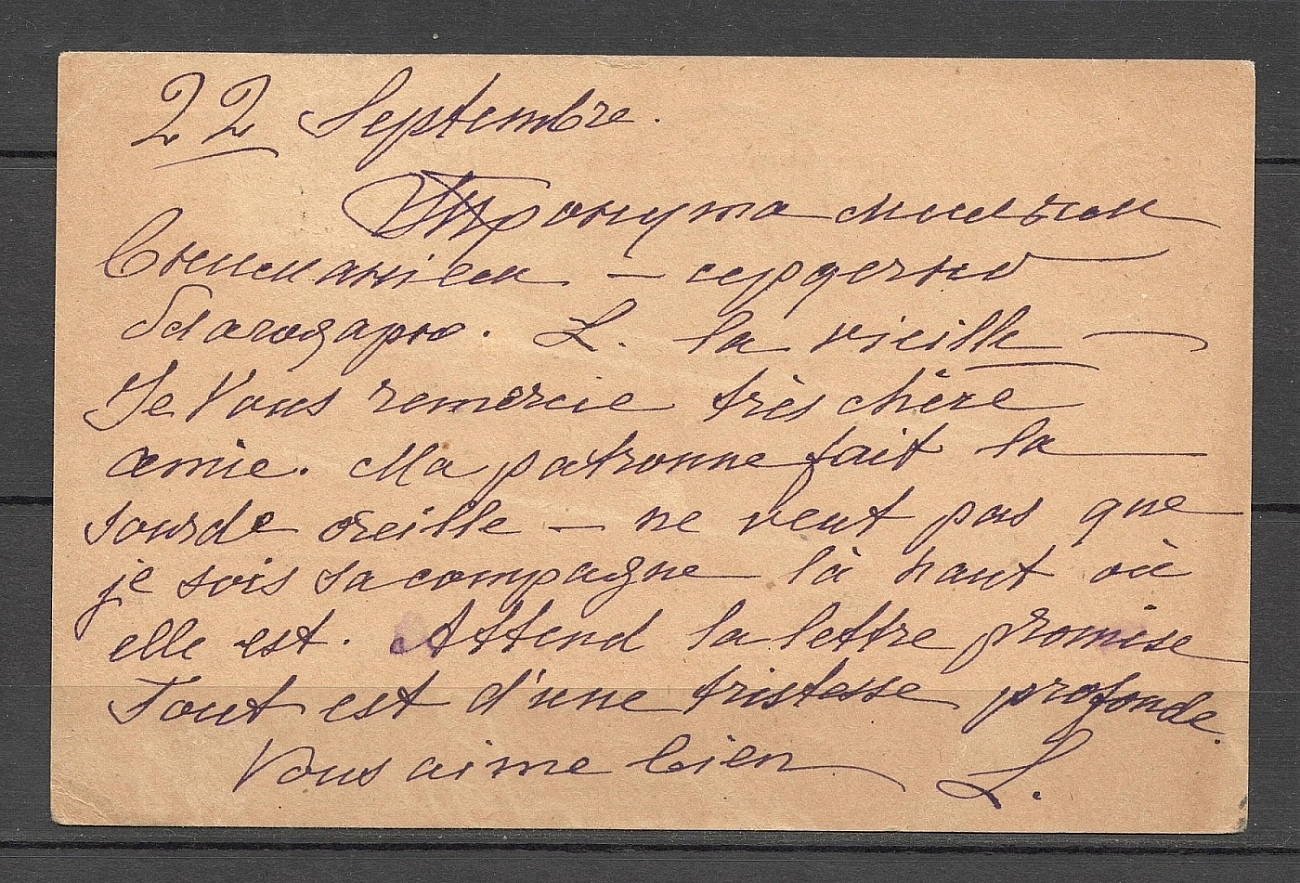 22 Septembre.
Тронута милымъ
вниманіем — сердечно
благодарю. L. la vieille —
Je Vous remercie très chère
amie. Ma patronne fait la
sourde oreille — ne veut pas que
je sois sa compagne là haut où
elle est. Attend la lettre promise
Tout est d'une tristesse profonde.
Vous aime bien L.